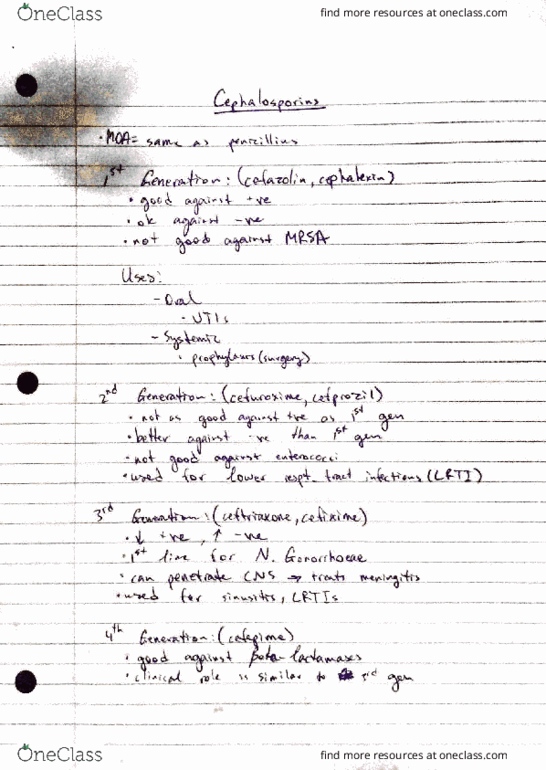 OneClass
find more resources at oneclass.com
Cephalosporins
• MOA = same as penicillins
1st Generation: (cefazolin, cephalexin)
• good against +ve
• ok against -ve
• not good against MRSA
Uses:
- Oral
• UTIs
- Systemic
• prophylaxis (surgery)
2nd Generation: (cefuroxime, cefprozil)
• not as good against +ve as 1st gen
• better against -ve than 1st gen
• not good against enterococci
• used for lower respt. tract infections (LRTI)
3rd Generation: (ceftriaxone, cefixime)
• ↓ +ve, ↑ -ve
• 1st line for N. Gonorrhoeae
• can penetrate CNS → treats meningitis
• used for sinusitis, LRTIs
4th Generation: (cefepime)
• good against beta lactamases
• clinical role is similar to 3rd gen
OneClass
find more resources at oneclass.com